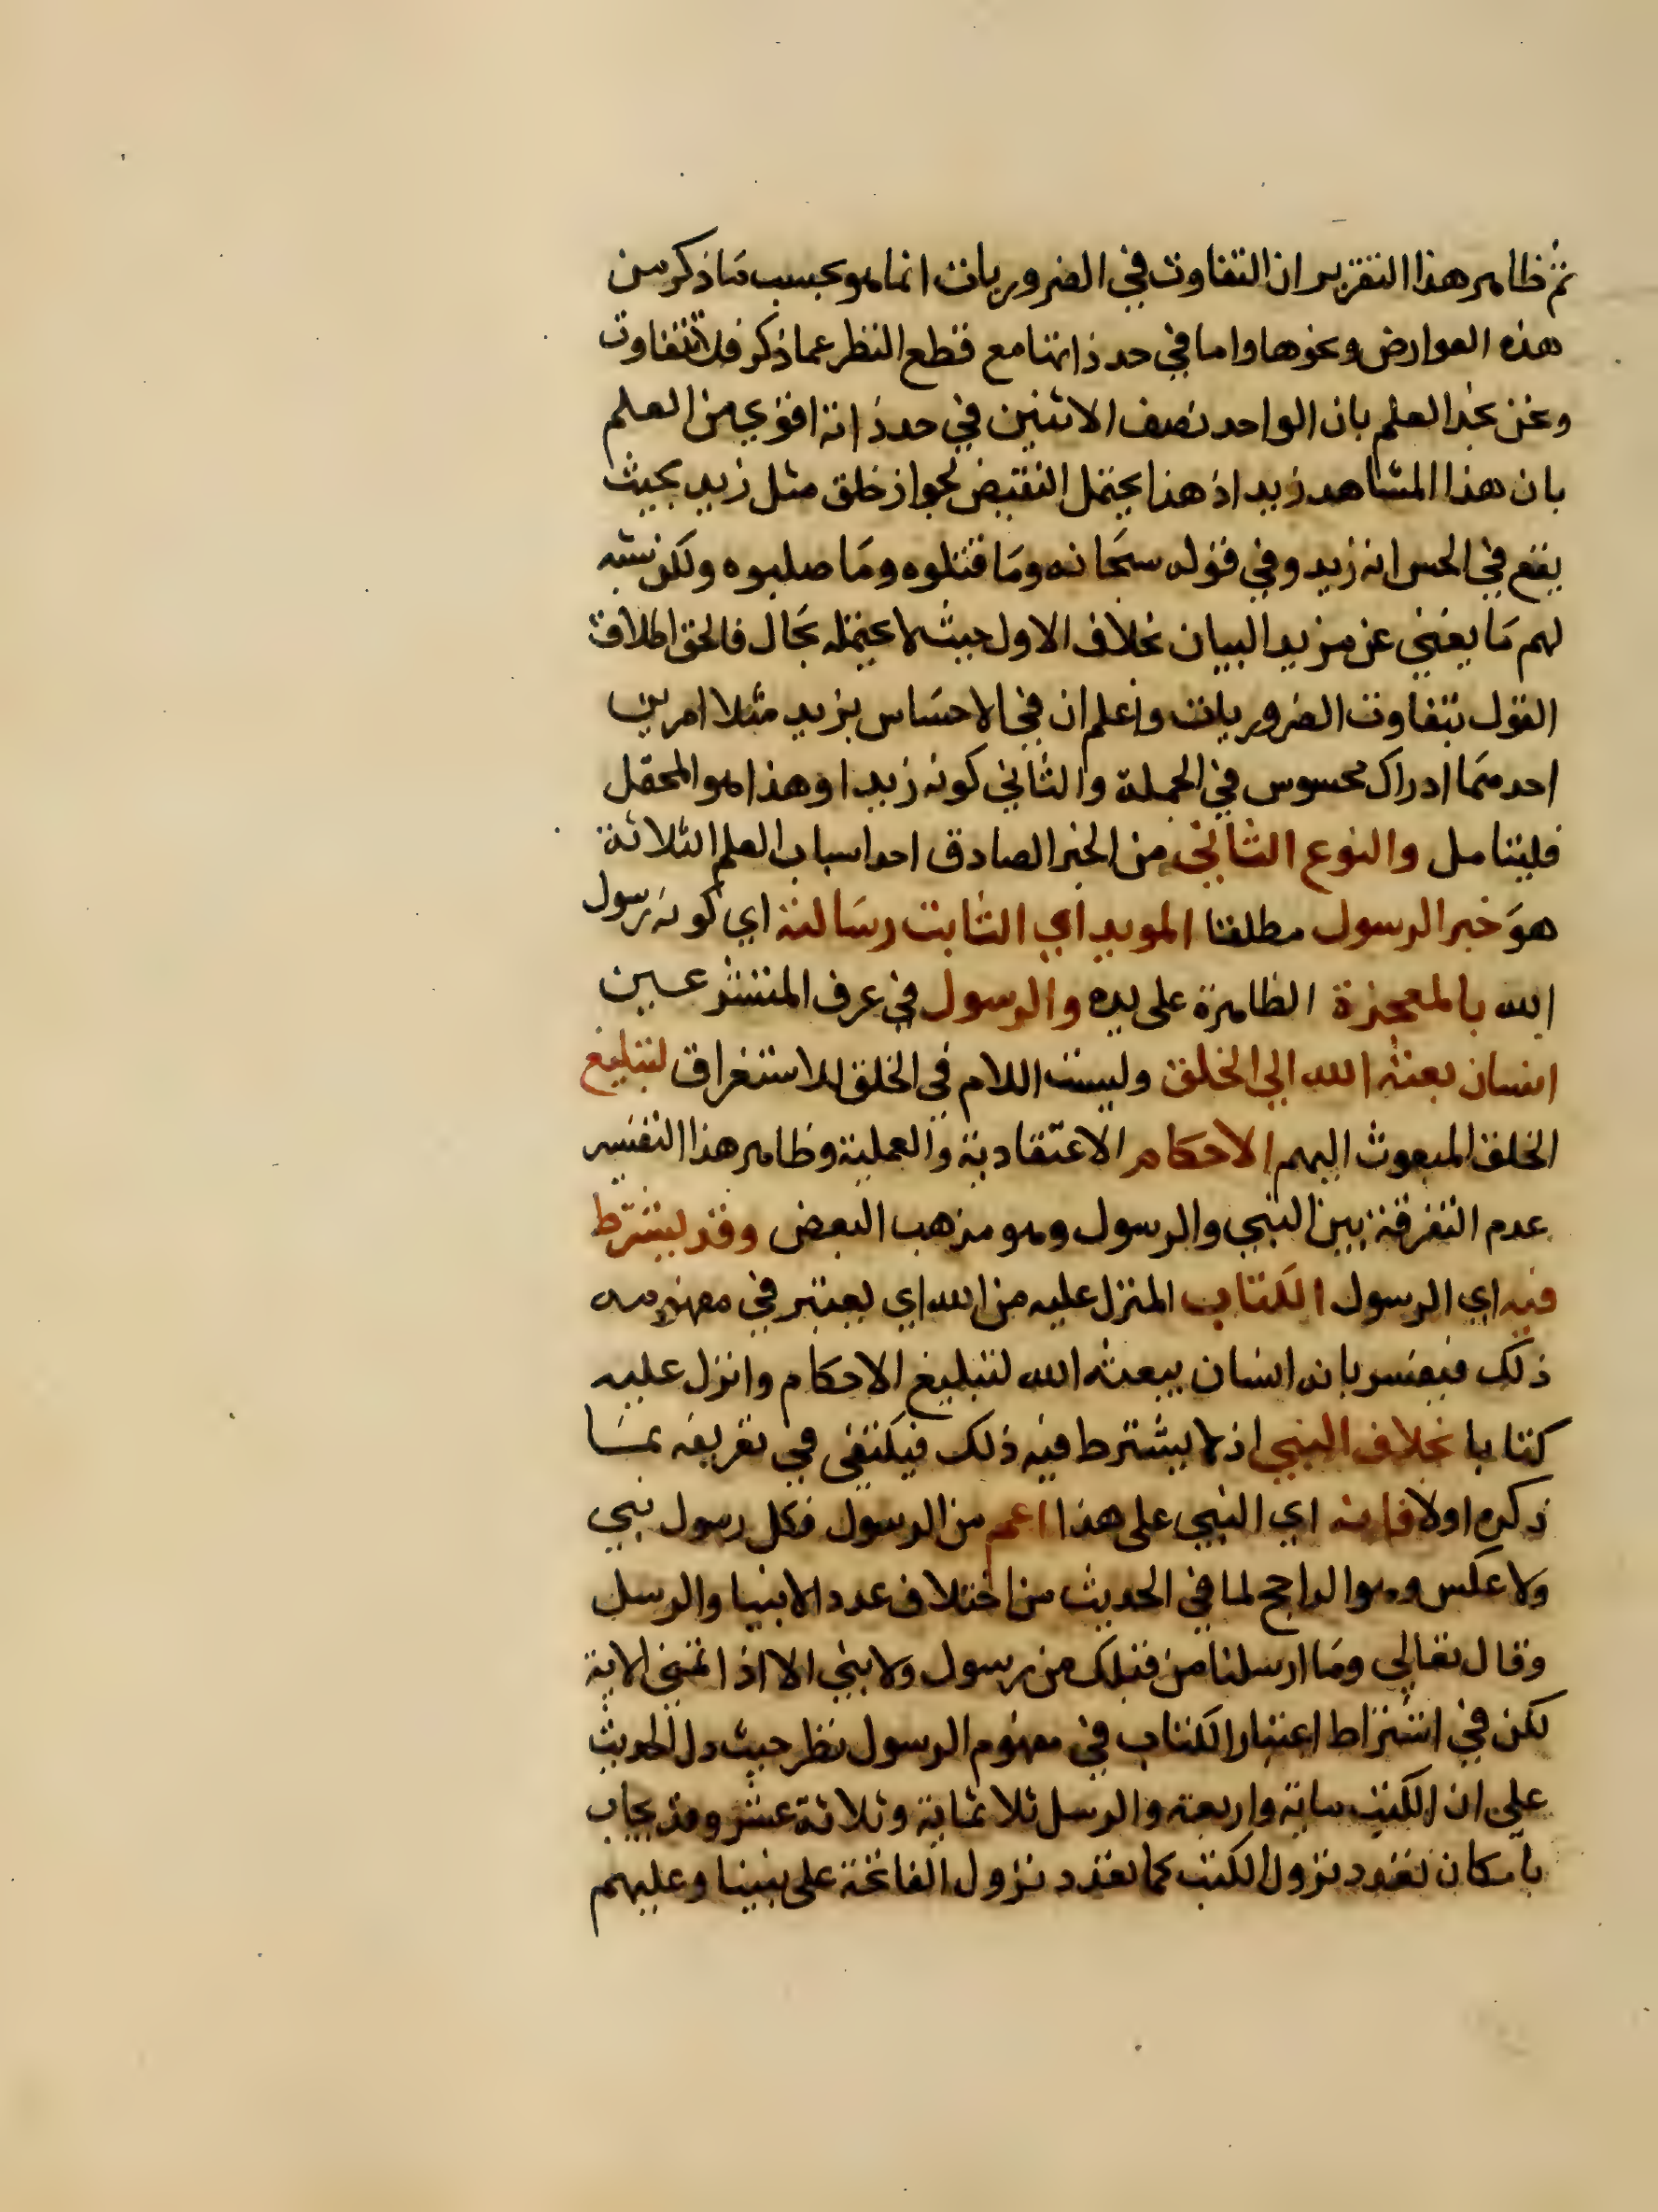 ثم ظاهر هذا التقرير ان التفاوت في الضروريات انما هو بحسب ما ذكر من
هذه العوارض ونحوها واما في حد ذاتها مع قطع النظر عما ذكر فلا تتفاوت
ونحن نجد العلم بان الواحد نصف الاثنين في حد ذاته اقوي من العلم
بان هذا المشاهد زيد اذ هذا يحتمل النقيض لجواز خلق مثل زيد بحيث
يقع في الحس انه زيد وفي قوله سبحانه وما قتلوه وما صلبوه ولكن شبه
لهم ما يغني عن مزيد البيان بخلاف الاول حيث لا يحتمله بحال فالحق اطلاق
القول بتفاوت الضروريات واعلم ان في الاحساس بزيد مثلا امرين
احدهما ادراك محسوس في الجملة والثاني كونه زيدا وهذا هو المحتمل
فليتامل والنوع الثاني من الخبر الصادق احد اسباب العلم الثلاثة
هو خبر الرسول مطلقا المويد اي الثابت رسالته اي كونه رسول
الله بالمعجزة الظاهرة علي يده والرسول في عرف المتشرعين
انسان بعثه الله الي الخلق وليست اللام في الخلق للاستغراق لتبليغ
الخلق المبعوث اليهم الاحكام الاعتقادية والعملية وظاهر هذا التفسير
عدم التفرقة بين النبي والرسول وهو مذهب البعض وقد يشترط
فيه اي الرسول الكتاب المنزل عليه من الله اي يعتبر في مفهومه
ذلك فيفسر بانه انسان يبعثه الله لتبليغ الاحكام وانزل عليه
كتابا بخلاف النبي اذ لا يشترط فيه ذلك فيكتفي في تعريفه بما
ذكره اولا فانه اي النبي علي هذا اعم من الرسول فكل رسول نبي
ولا عكس وهو الراجح لما في الحديث من اختلاف عدد الانبيا والرسل
وقال تعالي وما ارسلنا من قبلك من رسول ولا نبي الا اذا تمني الاية
لكن في اشتراط اعتبار الكتاب في مفهوم الرسول نظر حيث دل الحديث
علي ان الكتب ماية واربعة والرسل ثلاثماية وثلاثة عشر وقد يجاب
بامكان تعدد نزول الكتب كما تعدد نزول الفاتحة علي نبينا وعليهم